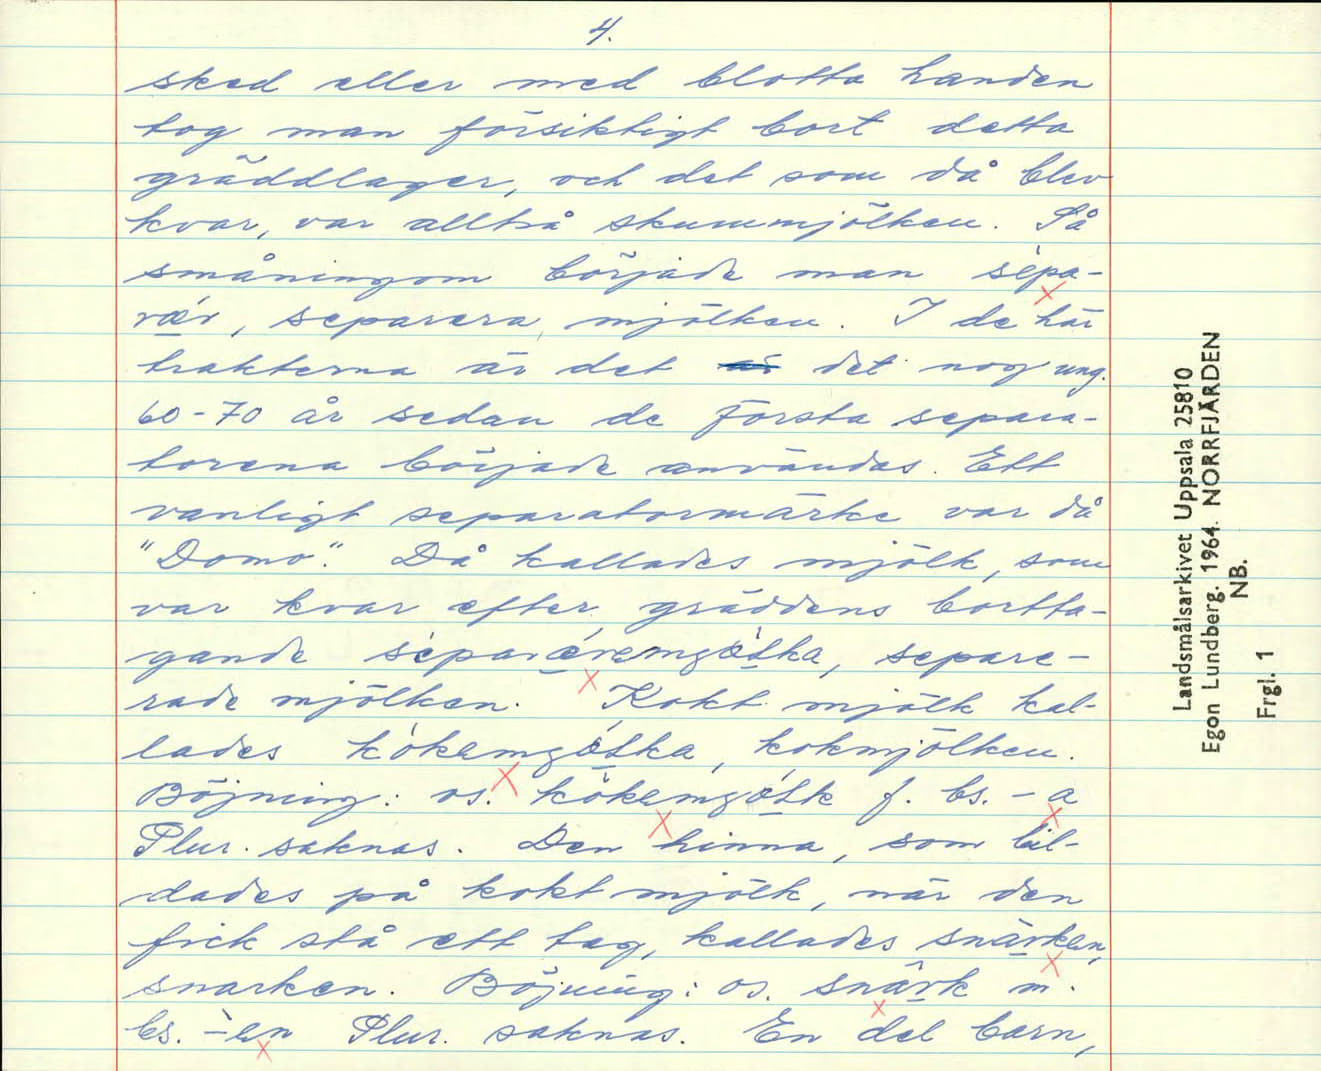 4.
sked eller med blotta handen
tog man försiktigt bort detta
gräddlager, och det som då blev
kvar, var alltså skummjölken. Så
småningom började man sépa-
rǽr, separera, mjölken. I de här
trakterna är det det nog ung.
60-70 år sedan de första separa-
torerna började användas. Ett
vanligt separatormärke var då
"Domo". Då kallades mjölk, som
var kvar efter gräddens bortta-
gande separade mjölken. Kokt mjölk kal-
lades kokmjölken.
Böjning: os. f. bs. -a
Plur. saknas. Den hinna, som bil-
dades på kokt mjölk, när den
fick stå ett tag, kallades snärken,
snarken. Böjning: os. snärk m.
bs. -en Plur. saknas. En del barn,
Landsmålsarkivet Uppsala 25810
Egon Lundberg. 1964. NORRFJÄRDEN
NB.
Frgl. 1